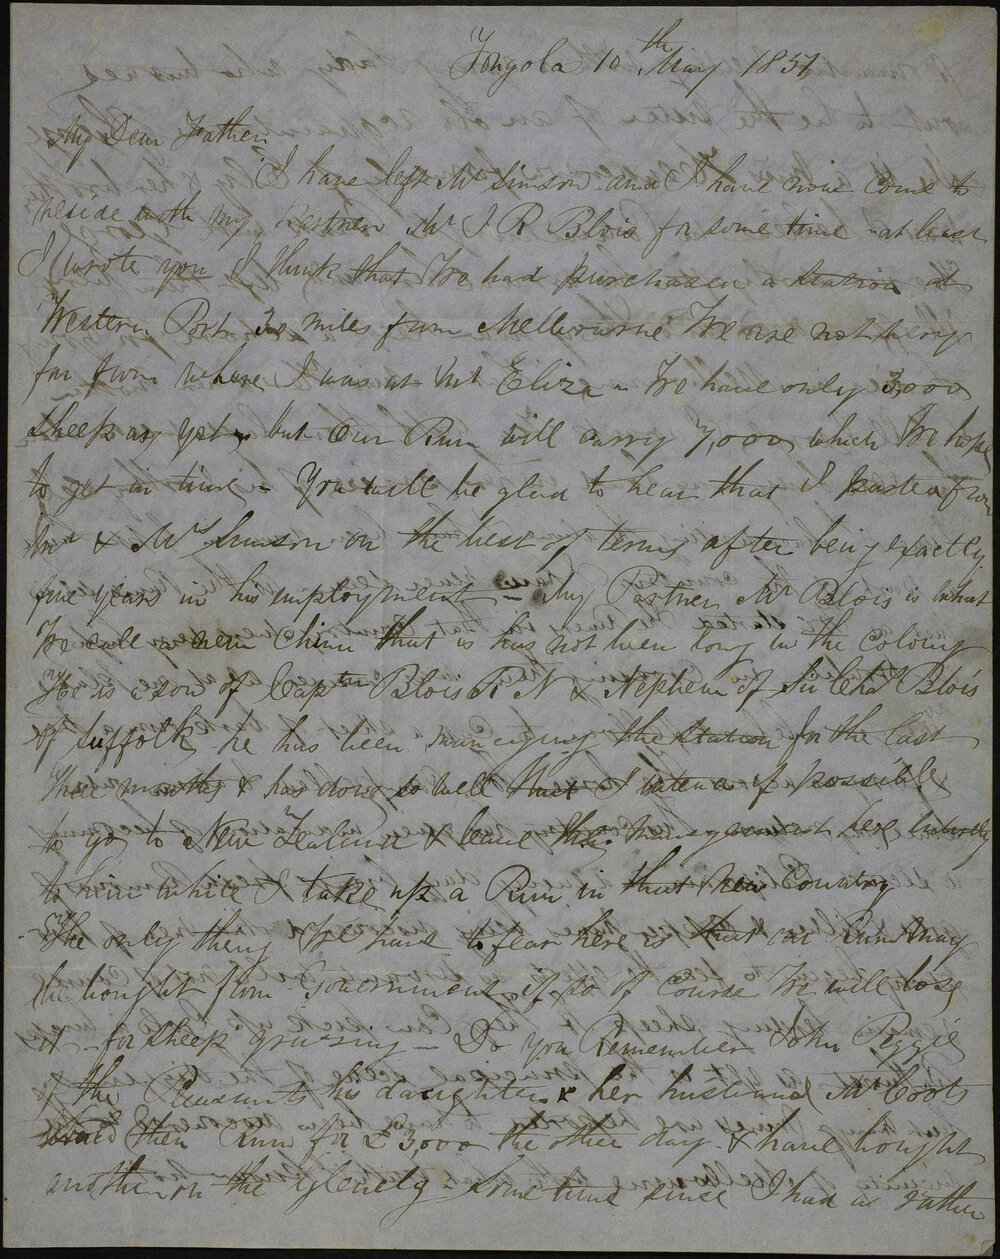 Tongola 10th May 1851
My Dear Father
I have left Mr Simson and I have now come to
reside with my Partner Mr J R Blois for some time at least
I wrote you I think that We had purchased a Station at
Western Port 30 miles from Melbourne We are not very
far from where I was at Mt Eliza - We have only 3000
sheep as yet but Our Run will carry 7,000 which We hope
to get in time - You will be glad to hear that I parted from
Mr & Mrs Simson on the best of terms after being exactly
five years in his employment - My Partner Mr Blois is what
We call a new Chum that is has not been long in the Colony
He is a son of Captn Blois R N & Nephew of Sir Chas Blois
of Suffolk he has been managing the Station for the last
three months & has done so well that I intend if possible
to go to New Zealand & leave the management here entirely
to him while I take up a Run in that new Country
The only thing We have to fear here is that our Run may
be bought from Government, if so of Course We will lose
it for sheep grazing - Do you Remember John
of the Pleasants his daughter & her husband Mr Coots
sold their Run for £3,000 the other day & have bought
another on the Glenelg some time since I had a rather